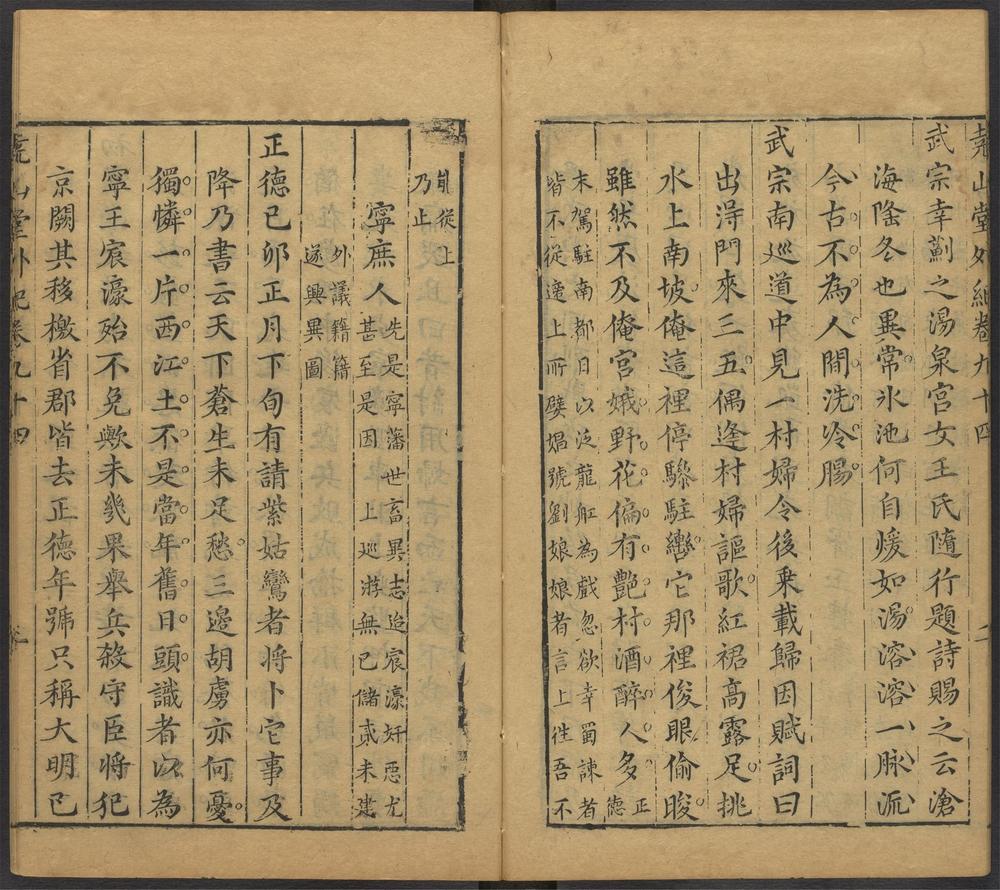 堯山堂外紀卷九十四　二
武宗幸薊之湯泉宮女王氏隨行題詩賜之云滄
海隆冬也異常氷池何自煖如湯溶溶一脉流
今古不為人間洗冷腸
武宗南廵道中見一村婦令後乗載歸因賦詞曰
出淂門來三五偶逢村婦謳歌紅裙高露足挑
水上南坡俺這裡停驂駐轡它那裡俊眼偷睃
雖然不及俺宮娥野花偏有艶村酒醉人多
正
德
末駕駐南都日以泛龍舡為戲忽欲幸蜀諫者
皆不從適上所嬖媢號劉娘娘者言上徃吾不
能從上
乃止
寧庶人
先是寧藩世畜異志迨宸濠奸惡尤
甚至是因上廵游無已儲貳未建
外議籍籍
遂興異圖
正德己卯正月下旬有請紫姑鸞者將卜它事及
降乃書云天下蒼生未足愁三邊胡虜亦何憂
獨憐一片西江土不是當年舊日頭識者以為
寧王宸濠殆不免歟未幾果舉兵殺守臣將犯
京闕其移檄省郡皆去正德年號只稱大明己
堯山堂外紀卷九十四